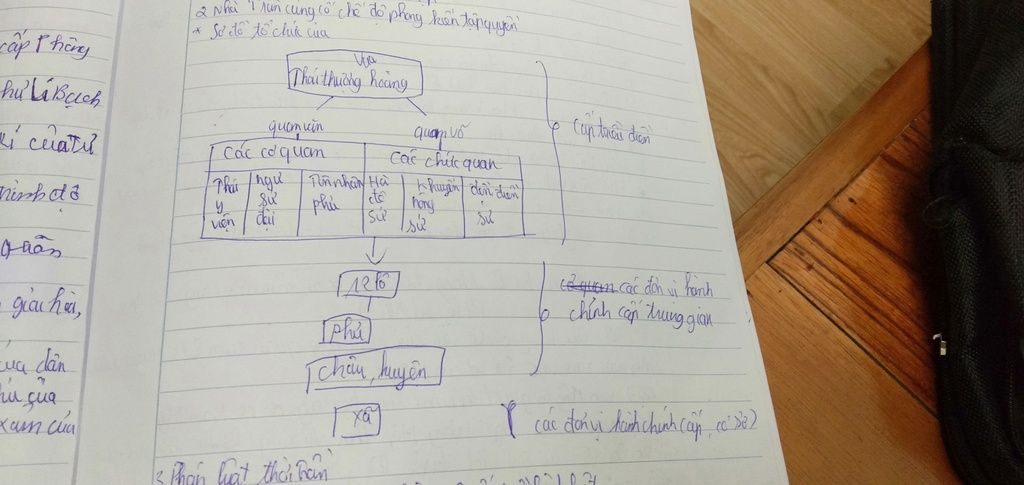 cấp Thông
hư Lí Bạch
kí của từ
hình độ
quân
giai hòa,
của dân
của
xóm của
2 Nhà Trần củng cố chế độ phong kiến tập quyền
* Sơ đồ tổ chức của
Vua
Thái thượng hoàng
quan văn
quan võ
Cấp triều đình
Các cơ quan
Các chức quan
Thái y viện
ngự sử đại
Tôn nhân phủ
Hà đê sứ
Khuyến nông sứ
đồn điền sứ
12 lộ
phủ
châu, huyện
các đơn vị hành
chính cấp trung gian
xã
các đơn vị hành chính cấp cơ sở
3. Pháp luật thời Trần